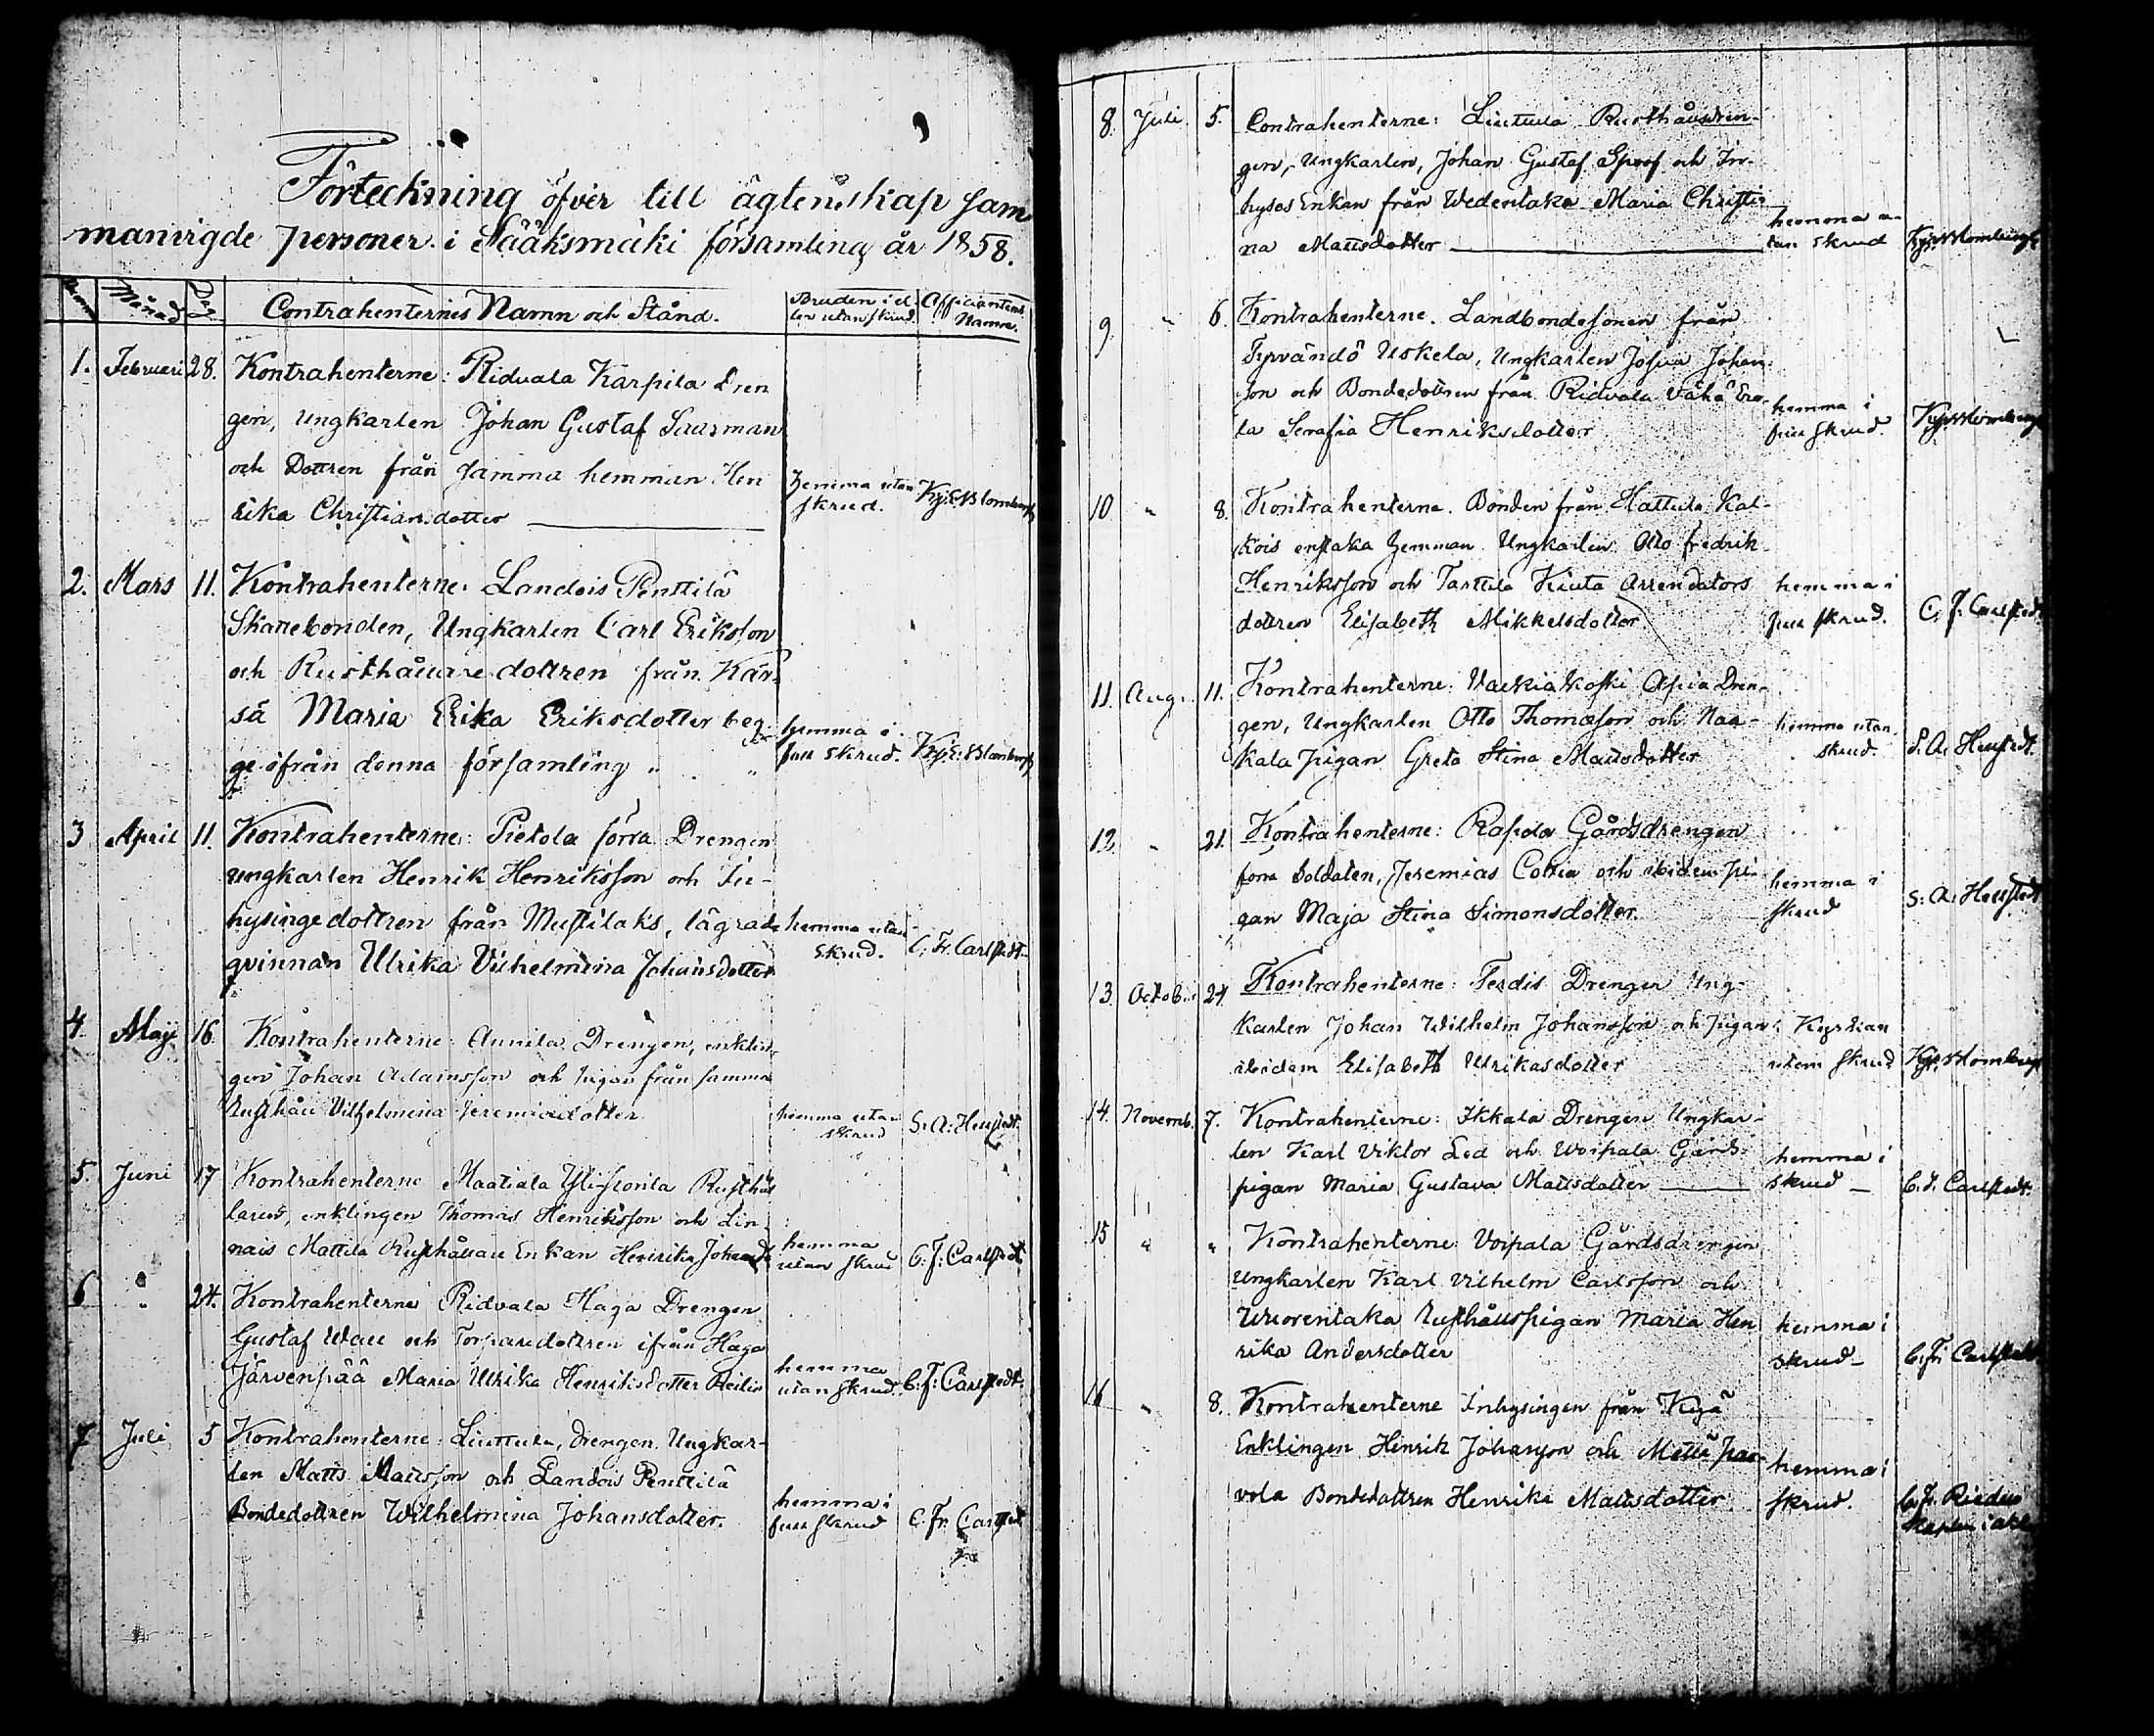 Förteckning öfver till ägtenskap sam
manvigde personer i Sääksmäki församling år 1858.
Månad Dag Contrahenternes Namn och Stånd. Bruden i el- Officiantens
ler utan skrud. Namn.
1. Februari 28. Kontrahenterne: Ridvala Karpila Dren
gen, ungkarlen Johan Gustaf Saarman
och Dottren från samma hemman Hen
rika Christiansdotter
hemma utan
skrud.
Kyrk. Blomberg
2. Mars 11. Kontrahenterne: Landois Penttilä
Skattebonden, Ungkarlen Carl Eriksson
och Rusthållaredottren från Kär
sä Maria Erika Eriksdotter beg
ge ifrån denna församling
hemma i
full skrud.
Blomberg
3 April 11. Kontrahenterne: Pietola förra Drengen
ungkarlen Henrik Henriksson och In-
hysinge dottren från Mustilaks, lägrade
qvinnan Ulrika Vilhelmina Johansdotter
hemma utan
skrud.
C. Fr. Carlstedt
4. Maji 16 Kontrahenterne: Annila Drengen, enklin
gen Johan Adamsson och pigan från samma
Rusthåll Vilhelmina Jeremiasdotter
hemma utan
skrud
S. A. Heustedt.
5. Juni 17 Kontrahenterne Maatiala Rusthål
laren, enklingen Thomas Henriksson och Lin
nais Mattila Rusthållare Enkan Henrika Johansd
hemma
utan skrud
C. F. Carlstedt
6 " 24. Kontrahenterne Ridvala Haga Drengen
Gustaf Wall och Torparedottren ifrån Haga
Järvenpää Maria Ulrika Henriksdotter
hemma
utan skrud.
C. F. Carlstedt.
7 Juli 5 Kontrahenterne: Liuttula, drengen Ungkar-
len Matts Mattsson och Landois Penttilä
Bondedottren Wilhelmina Johansdotter.
hemma i
full skrud
C. Fr. Carlstedt
8. Juli. 5. Contrahenterne: Liuttula Rusthållsdren-
gen, Ungkarlen, Johan Gustaf Sprof och In-
hyses Enkan från Wedentaka Maria Christi-
na Mattsdotter
hemma u-
tan skrud
Blomberg
9 " 6. Kontrahenterne. Landbondesonen från
Tyrvändö Uskela, Ungkarlen Josua Johan
son och Bondedottren från Ridvala Vähä Ero-
la Serafia Henriksdotter
hemma i
full skrud.
Blomberg
10 " 8. Kontrahenterne. Bonden från Hattula Kat-
kois enstaka hemman Ungkarlen Otto Fredrik
Henriksson och Tarttila Kiuta Arrendators
dottren Elisabeth Mikkelsdotter
hemma i
full skrud.
C. F. Carlstedt
11. Aug. 11. Kontrahenterne: Valkiakoski Apia Dren-
gen, Ungkarlen Otto Thomasson och Naa-
kala pigan Greta Stina Mattsdotter
hemma utan
skrud.
S. A. Heustedt.
12. " 21. Kontrahenterne: Rapola Gårdsdrengen
förra Soldaten, Jeremias Collin och ibidem pi-
gan Maja Stina Simonsdotter.
hemma i
skrud
S. A. Heustedt
13. October 24 Kontrahenterne: Ferdis Drengen Ung-
karlen Johan Wilhelm Johansson och pigan
ibidem Elisabeth Ulrikasdotter
i Kyrkan
utom skrud
Blomberg
14. Novemb. 7. Kontrahenterne: Ikkala Drengen Ungkar-
len Karl Viktor Led och Woipala Gårds-
pigan Maria Gustava Mattsdotter
hemma i
skrud
C. F. Carlstedt.
15 " " Kontrahenterne: Voipala Gårdsdrengen
Ungkarlen Karl Vilhelm Carlsson och
Wuorentaka Rusthållspigan Maria Hen
rika Andersdotter
hemma i
skrud
C. Fr. Carlstedt
16 " 8. Kontrahenterne Inhysingen från
Enklingen Henrik Johansson och Metsä par-
vola Bondedottren Henrika Mattsdotter
hemma i
skrud.